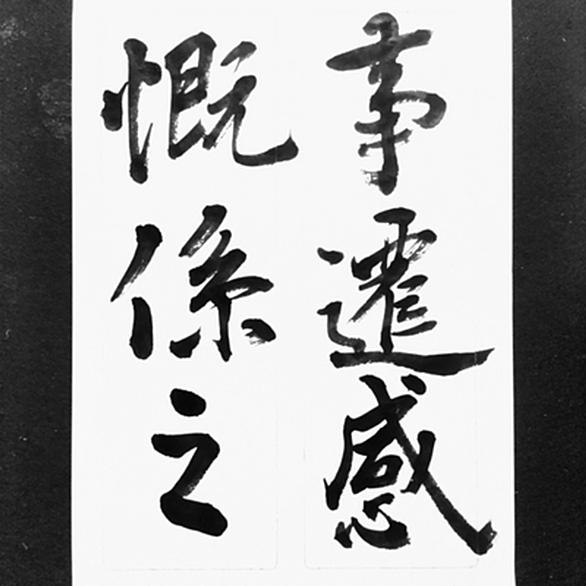 事遷感
慨係之